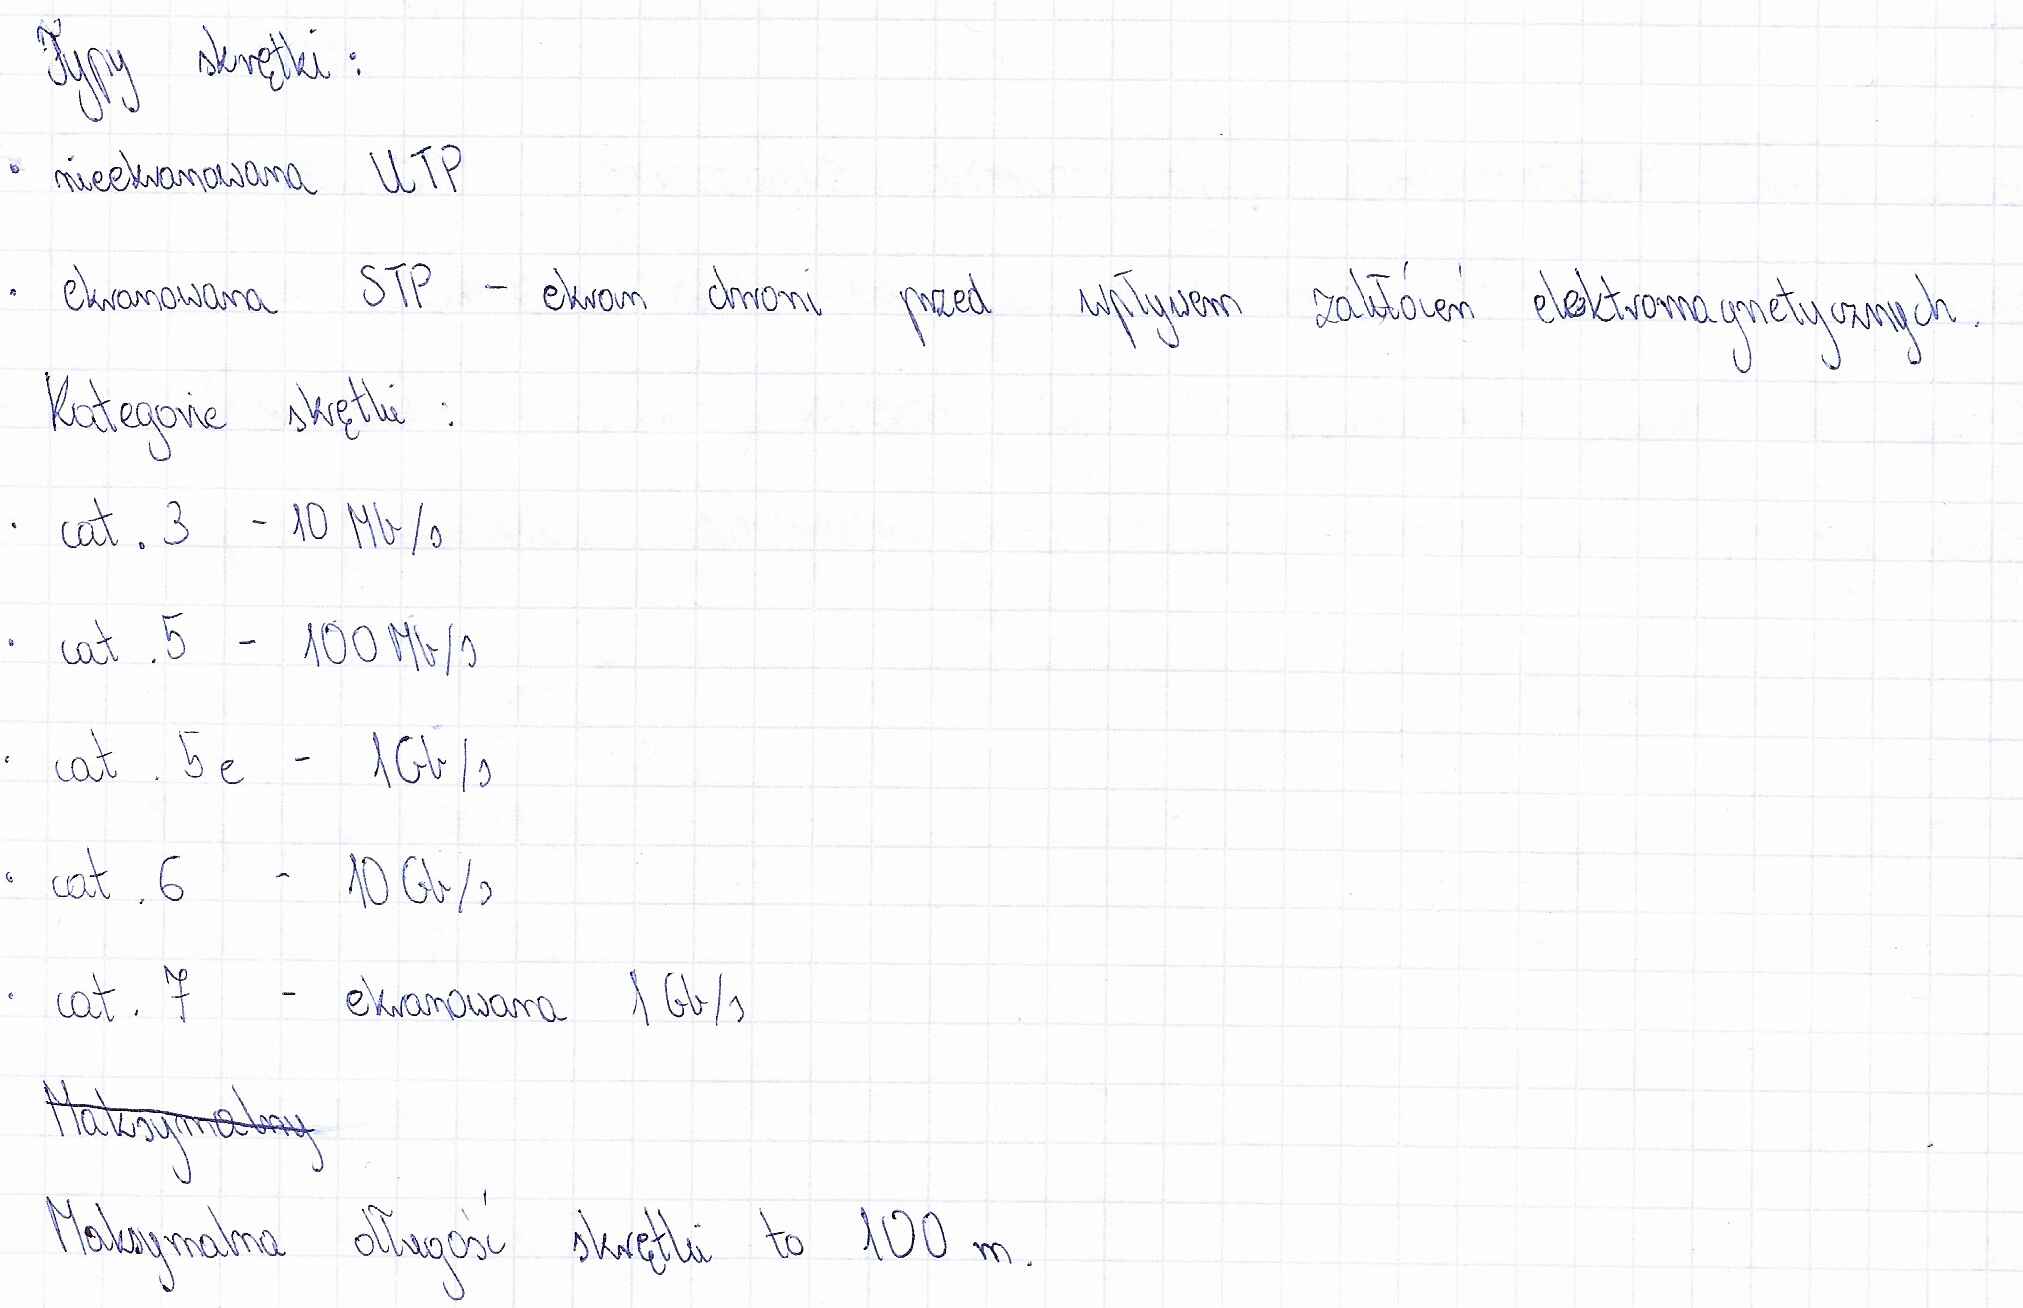 Typy skrętki:
• nieekranowana UTP
• ekranowana STP - ekran chroni przed wpływem zakłóceń elektromagnetycznych.
Kategorie skrętki:
• cat. 3 - 10 Mb/s
• cat. 5 - 100 Mb/s
• cat. 5e - 1Gb/s
• cat. 6 - 10 Gb/s
• cat. 7 - ekranowana 1 Gb/s
Maksymalny
Maksymalna długość skrętki to 100 m.